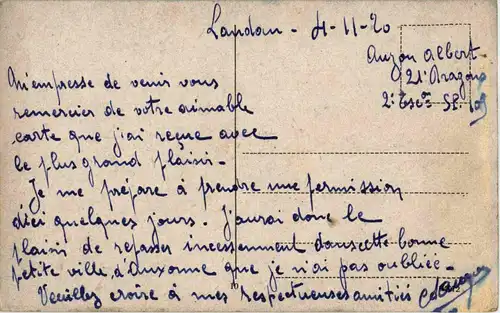 Landau - 4-11-20
Auzou Albert
21e Dragons
2e Escon SP.
M'empresse de venir vous
remercier de votre aimable
carte que j'ai reçue avec
le plus grand plaisir.
Je me prépare à prendre une permission
d'ici quelques jours. J'aurai donc le
plaisir de repasser incessemment dans cette bonne
petite ville, d'Auxonne que je n'ai pas oubliée.
Veuillez croire à mes respectueuses amitiés